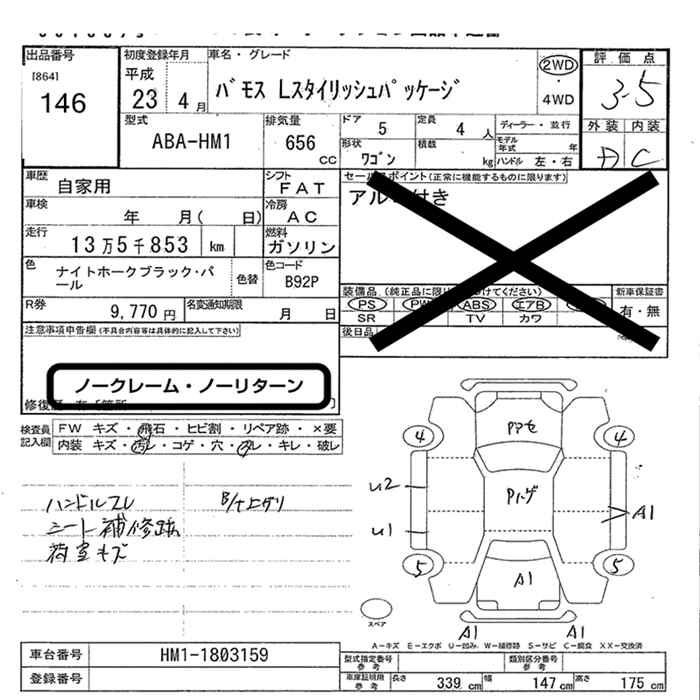 出品番号
[864]
146
初度登録年月
平成
23 4月
車名・グレード
バモス Lスタイリッシュパッケージ
2WD
4WD
評価点
3.5
外装 内装
D C
型式
ABA-HM1
排気量
656
CC
ドア 5
定員 4 人
形状
ワゴン
積載
kg
ディーラー・並行
モデル年式 年
ハンドル 左・右
車歴
自家用
シフト
FAT
車検
年 月( 日)
冷房
AC
走行
13万5千853 km
燃料
ガソリン
色
ナイトホークブラック・パール
色替
色コード
B92P
R券
9,770 円
名変通知期限
月 日
セールスポイント(正常に機能するものに限ります)
装備品
PS PW ABS エアB
SR TV カワ
新車保証書
有・無
後日品
注意事項申告欄(不具合内容等は具体的に記入して下さい)
ノークレーム・ノーリターン
検査員記入欄
FW キズ・飛石・ヒビ割・リペア跡・×要
内装 キズ・汚れ・コゲ・穴・スレ・キレ・破レ
ハンドルスレ
B/ト上グリ
シート補修跡
荷室キズ
4
4
U2
U1
A1
5
5
A1
A1
A1
スペア
A-キズ E-エクボ U-凹み W-補修跡 S-サビ C-腐食 XX-交換済
車台番号
HM1-1803159
登録番号
型式指定番号
参考
類別区分番号
参考
車庫証明用
参考
長さ 339 cm
幅 147 cm
高さ 175 cm